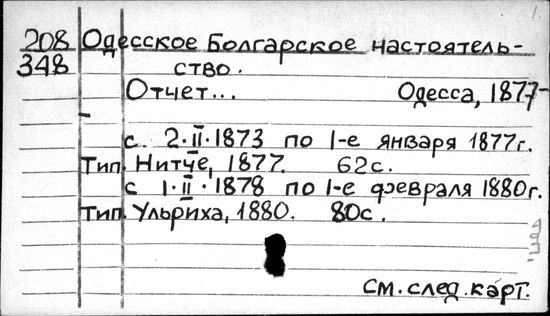 208 Одесское Болгарское настоятель-
348 ство.
Отчет... Одесса, 1877-
с 2.II.1873 по 1-е января 1877г.
Тип. Нитче, 1877. 62с.
с 1.II.1878 по 1-е февраля 1880г.
Тип. Ульриха, 1880. 80с.
см. след. карт.